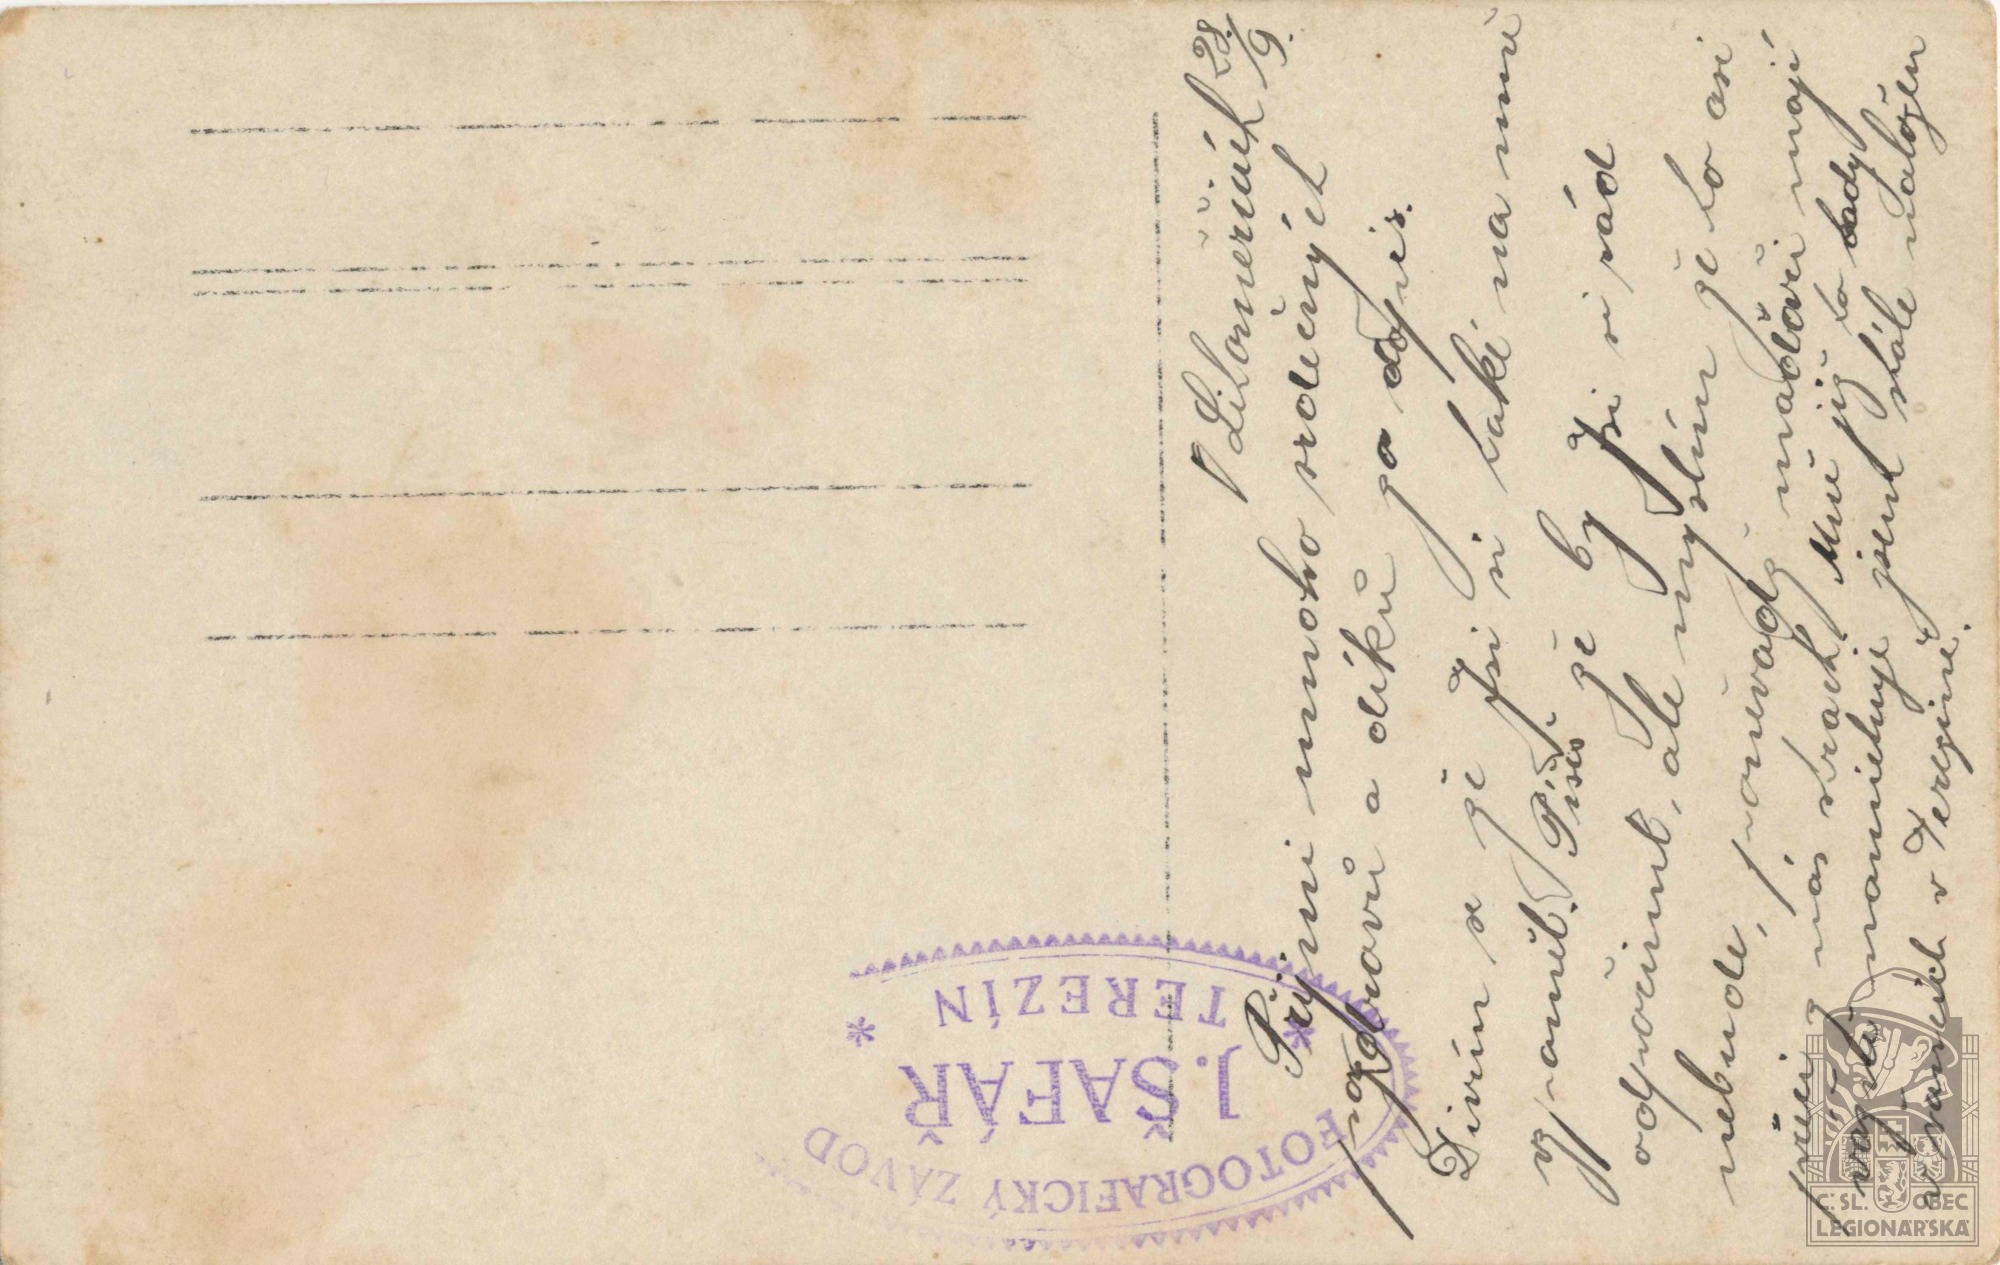 V Litoměřicích 28/9.
Přijmi mnoho srdečných
pozdravů a díků za dopis.
Divím se že Jsi si také na mně
vzpomněl. Píšeš že by Jsi si rád
odpočinul, ale myslím že to asi
nebude, poněvadž maďaři mají
před námi strach. Mně již to tady
jsem stále nabožen
v Terezíně.
FOTOGRAFICKÝ ZÁVOD
J. ŠAFÁŘ
* TEREZÍN *
Č.SL. OBEC
LEGIONÁŘSKÁ